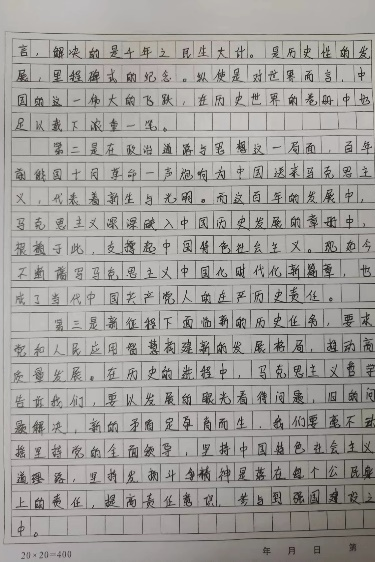 言，解决的是千年之民生大计。是历史性的发
展，里程碑式的纪念。纵使是对世界而言，中
国的这一伟大的飞跃，在历史世界的卷册中也
足以载下浓重一笔。
第二是在政治道路与思想这一局面，百年
前俄国十月革命一声炮响为中国送来马克思主
义，代表着新生与光明。而这百年的发展中，
马克思主义深深融入中国历史发展的章册中，
根植于此，支撑起中国特色社会主义。现如今
不断谱写马克思主义中国化时代化新篇章，也
成了当代中国共产党人的庄严历史责任。
第三是新征程下面临新的历史任务，要求
党和人民应用智慧构建新的发展格局，推动高
质量发展。在历史的进程中，马克思主义哲学
告诉我们，要以发展的眼光看待问题，旧的问
题解决，新的矛盾定孕育而生，我们要毫不动
摇坚持党的全面领导，坚持中国特色社会主义
道理路，坚持发扬斗争精神是落在每个公民肩
上的责任，提高责任意识，参与到强国建设之
中。
20×20=400 年 月 日 第